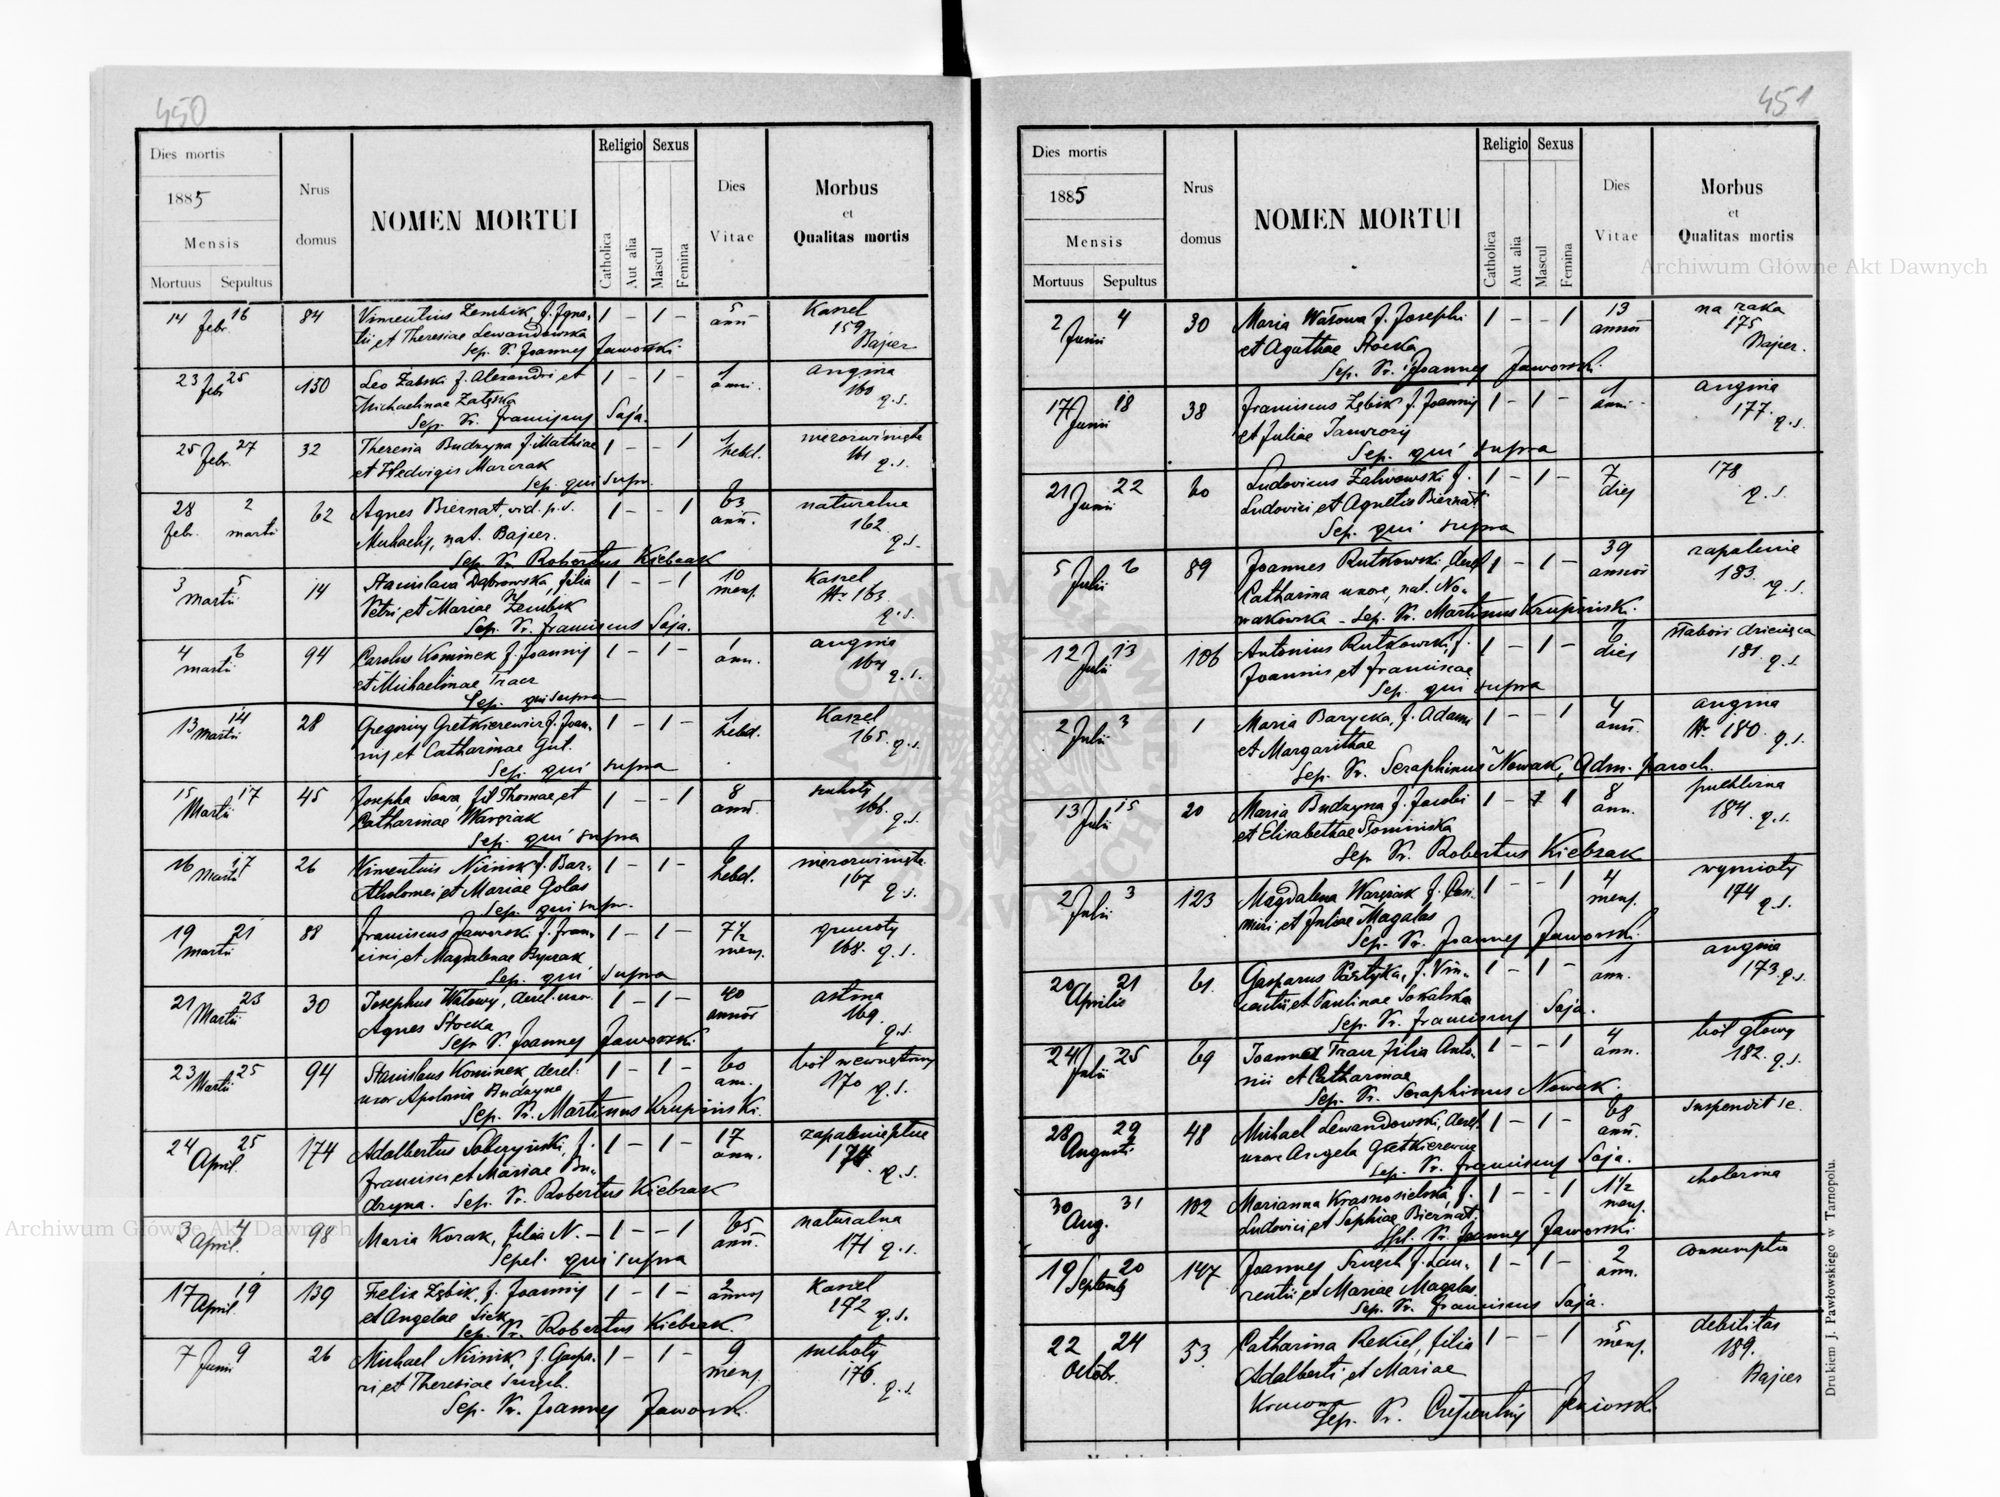 450
Dies mortis
1885
Mensis
Mortuus Sepultus
Nrus
domus
NOMEN MORTUI
Religio Sexus
Catholica
Aut alia
Mascul
Femina
Dies
Vitae
Morbus
et
Qualitas mortis
14 16 84 Vincentius Zembik, f. Igna- 1 - 1 - 5 Kaszel
febr. tii et Theresiae Lewandowska ann 159
Sep. Vr. Joannes Jaworski Bajer
23 25 150 Leo Zabski f. Alexandri et 1 - 1 - 1 angina
febr Michaelinae Załęska anni. 160
Sep. Vr. Franciscus Saja. q.s.
25 27 32 Theresia Budzyna f. Mathiae 1 - - 1 1
febr. et Hedvigis Marczak hebd. 161 q.s.
Sep. qui supra
28 2 62 Agnes Biernat, vid. p.d. 1 - - 1 63 naturalna
febr. martii Michaelis, nat. Bajer. ann. 162
Sep. Vr. Robertus Kiebzak q.s.
3 5 14 Stanislava Dąbrowska, filia 1 - - 1 10 Kaszel
martii Petri et Mariae Zembik mens. Nr 163
Sep. Vr. Franciscus Saja. q.s.
4 6 94 Carolus Kominek f. Joannis 1 - 1 - 1 angina
martii et Michaelinae Tracz ann. 164 q.s.
Sep. qui supra
13 14 28 Gregorius Gretkierewicz f. Joan- 1 - 1 - 1 Kaszel
martii nis et Catharinae Gut. hebd. 165 q.s.
Sep. qui supra
15 17 45 Josepha Sowa, fil Thomae et 1 - - 1 8 suchoty
Martii Catharinae Waręzak ann 166. q.s.
Sep. qui supra
16 17 26 Vincentius Niśnik f. Bar- 1 - 1 - 6
Martii tholomei et Mariae Golas hebd. 167 q.s.
Sep. qui supr.
19 21 88 Franciscus Jaworski f. Fran- 1 - 1 - 7½
martii cisci et Magdalenae mens. 168. q.s.
Sep. qui supra
21 23 30 Josephus Watowy, derel. uxo. 1 - 1 - 40 astma
Martii Agnes Stocka annor 169
Sep. Vr. Joannes Jaworski q.s.
23 25 94 Stanislaus Kominek, derel. 1 - 1 - 60 ból wewnętrzny
Martii uxor Apolonia Budzyna ann. 170 q.s.
Sep. Vr. Martinus Krupiński.
24 25 174 Adalbertus Sobczyński, f. 1 - 1 - 17 zapalenie płuc
April. Francisci et Mariae Bu- ann.
dzyna. Sep. Vr. Robertus Kiebzak q.s.
3 4 98 Maria Kozak, filia N. - 1 - - 1 65 naturalna
April. Sepel. qui supra ann. 171 q.s.
17 19 139 Felix Zębik, f. Joannis 1 - 1 - 2 Kaszel
April. et Angelae Siek annos 172
Sep. Vr. Robertus Kiebzak. q.s.
7 9 26 Michael Niśnik, f. Gaspa- 1 - 1 - 9 suchoty
Junii ri, et Theresiae mens. 176.
Sep. Vr. Joannes Jaworsk. q.s.
451
Dies mortis
1885
Mensis
Mortuus Sepultus
Nrus
domus
NOMEN MORTUI
Religio Sexus
Catholica
Aut alia
Mascul
Femina
Dies
Vitae
Morbus
et
Qualitas mortis
2 4 30 Maria Watowa f. Josephi 1 - - 1 13 na raka
Junii et Agathae Stocka annor 175
Sep. Vr. Joannes Jaworski. Bajer.
17 18 38 Franciscus Zębik f. Joannis 1 - 1 - 1 angina
Junii et Juliae anni 177.
Sep. qui supra q.s.
21 22 60 Ludovicus Zalewowski f. 1 - 1 - 7 178
Junii Ludovici et Agnetis Biernat dies q.s.
Sep. qui supra
5 6 89 Joannes Rutkowski derel 1 - 1 - 39 zapalenie
Julii Catharina uxore, nat. No- annor 183.
wakowska - Sep. Vr. Martinus Krupinski. q.s.
12 13 106 Antonius Rutkowski f. 1 - 1 - 6 słabość dziecięca
Julii Joannis et Franciscae dies 181. q.s.
Sep. qui supra
2 3 1 Maria Barycka, f. Adami 1 - - 1 4 angina
Julii et Margarithae ann. Nr 180. q.s.
Sep. Vr. Seraphinus Nowak, Adm. paroch.
13 15 20 Maria Budzyna f. Jacobi 1 - 1 8 puchlina
Julii et Elisabethae Słomińska ann. 184. q.s.
Sep. Vr. Robertus Kiebzak
2 3 123 Magdalena Waręzak f. Casi- 1 - - 1 4 wymioty
Julii miri et Juliae Magalas mens. 174 q.s.
Sep. Vr. Joannes Jaworski.
20 21 61. Gasparus Pastyka, f. Vin- 1 - 1 - 1 angina
Aprilis centii et Paulinae Sokalska ann. 173. q.s.
Sep. Vr. Franciscus Saja.
24 25 69 Joanna Tracz filia Anto- 1 - - 1 4 ból głowy
Julii nii et Catharinae ann. 182. q.s.
Sep. Vr. Seraphinus Nowak.
28 29 48 Michael Lewandowski, derel. 1 - 1 - 68 suspendit se.
Augusti uxore Angela Gretkierewicz ann.
Sep. Vr. Franciscus Saja.
30 31 102 Marianna Krasnosielska, f. 1 - - 1 1½ cholerina
Aug. Ludovici, et Sophiae Biernat. mens.
Spl. Vr. Joannes Jaworski
19 20 147 Joannes f. Lau- 1 - 1 - 2 consumptio
Septemb rentii, et Mariae Magalas ann.
Sep. Vr. Franciscus Saja.
22 24 53. Catharina Rekiel, filia 1 - - 1 5 debilitas
Octobr. Adalberti, et Mariae mens. 189.
Sep. Vr. Bajer
Drukiem J. Pawłowskiego w Tarnopolu.
Archiwum Główne Akt Dawnych
Archiwum Główne Akt Dawnych
ARCHIWUM GŁÓWNE AKT DAWNYCH